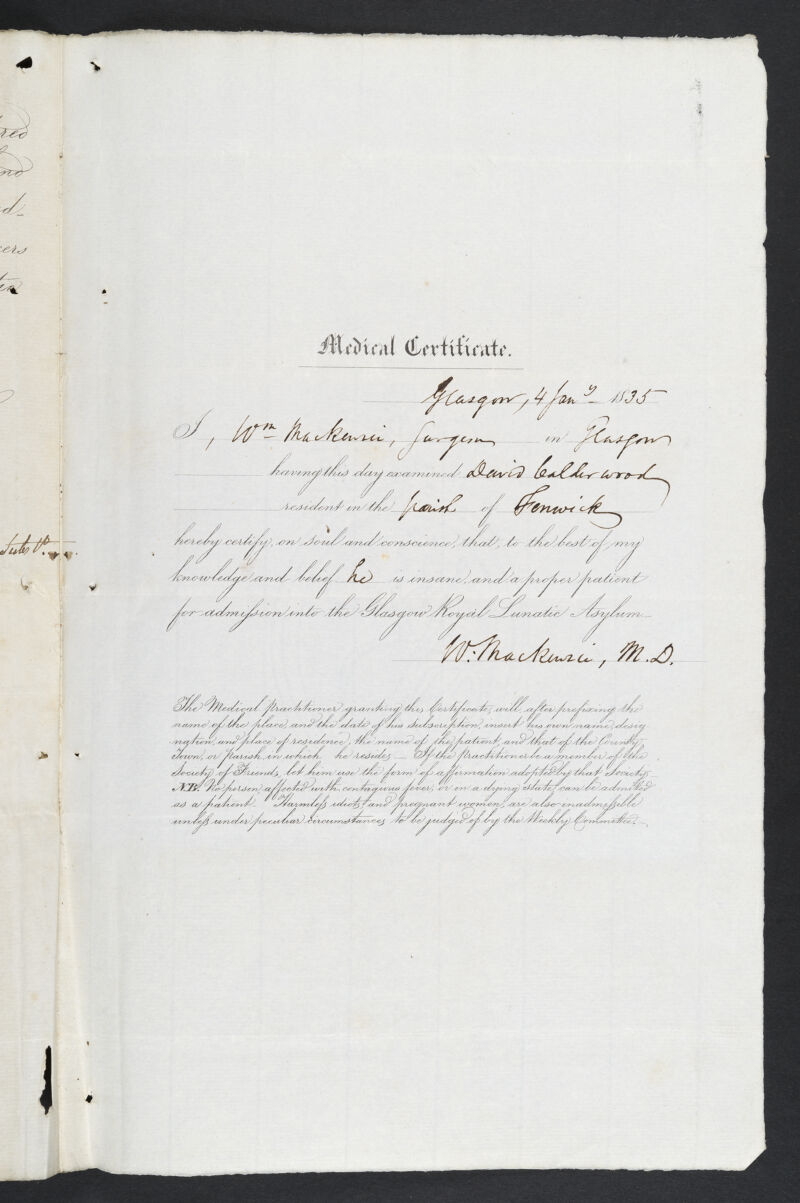 red
nd
d-
cers
Medical Certificate.
Glasgow, 4 Jany. 1835
I, Wm Mackenzie, Surgeon in Glasgow
having this day examined David Calderwood
resident in the parish of Fenwick
hereby certify, on soul and conscience, that, to the best of my
knowledge and belief he is insane, and a proper patient
for admission into the Glasgow Royal Lunatic Asylum
W: Mackenzie, M.D.
The Medical Practitioner granting this Certificate, will, after prefixing the
name of the place, and the date of his subscription, insert his own name, desig
nation, and place of residence, the name of the patient, and that of the County,
Town, or Parish, in which he resides_ If the Practitioner be a member of the
Society of Friends, let him use the form of affirmation adopted by that Society.
N.B. No person affected with contagious fever, or in a dying state, can be admitted
as a patient. Harmless idiots, and pregnant women, are also inadmissible
unless under peculiar circumstances, to be judged of by the Weekly Committee.